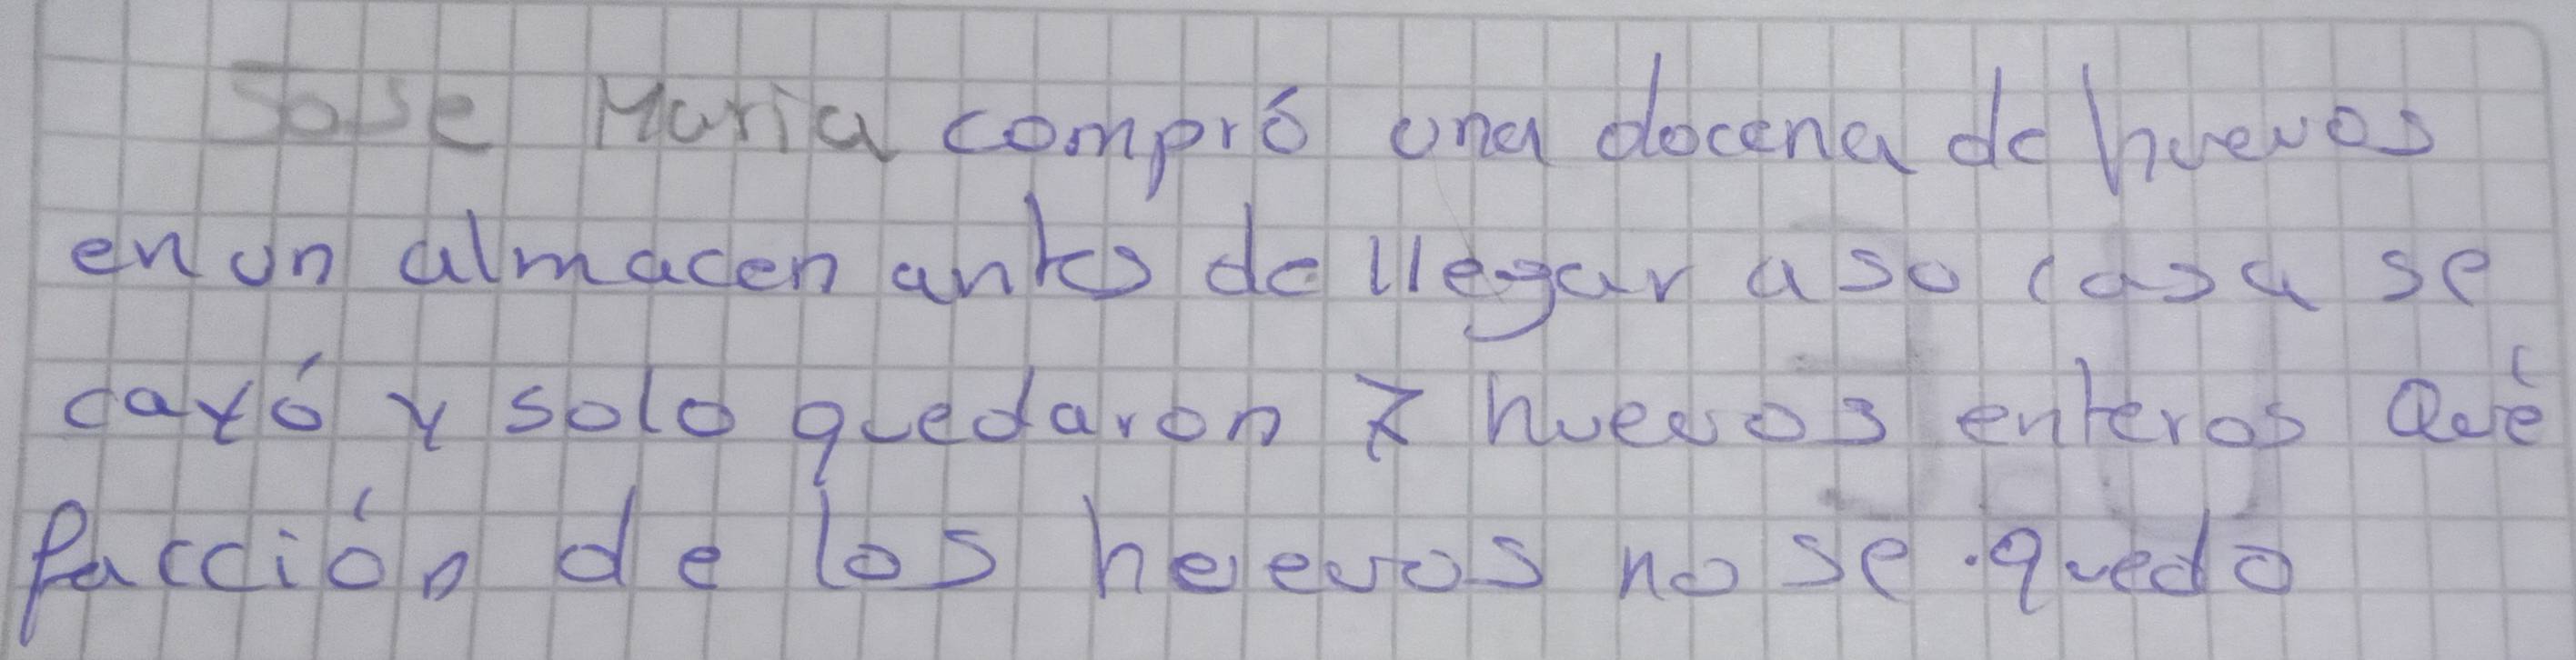 Jose Maria compró una docena de huevos
en un almacen antes de llegar a so casa se
cayó y solo quedaron 7 huevos enteros Qué
facción de los heuevos no se quedo